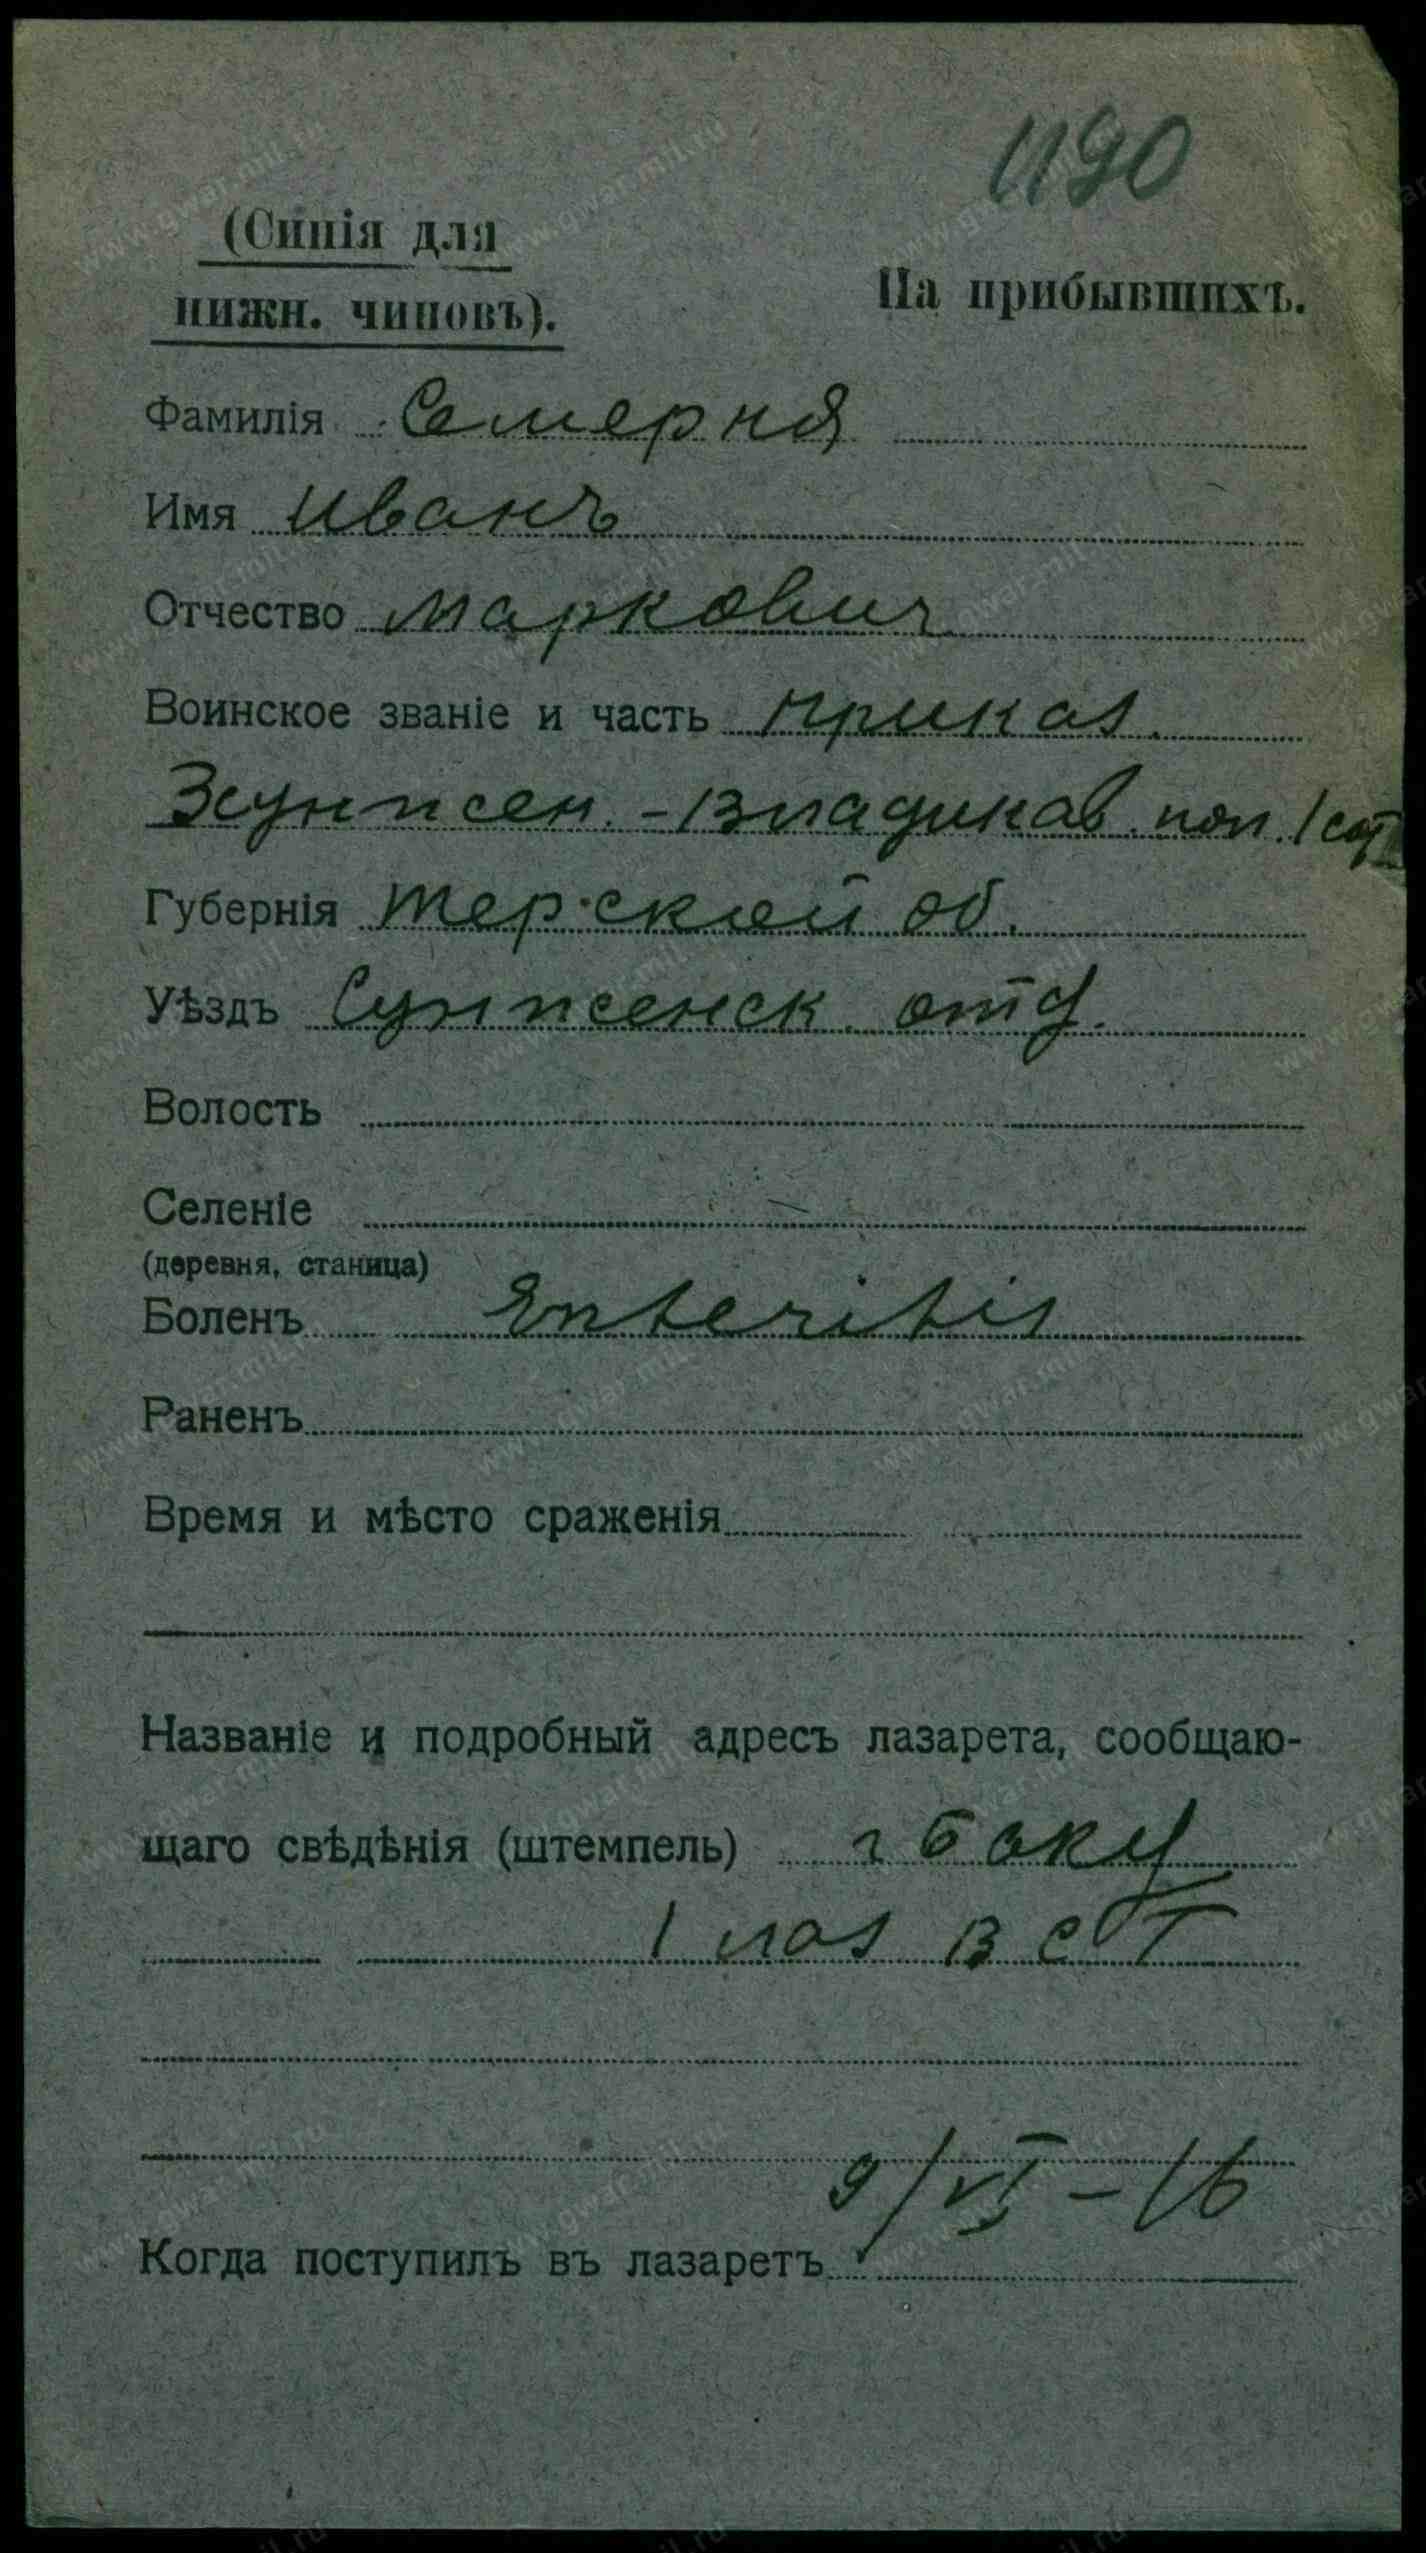 1190
(Синія для
нижн. чиновъ).
На прибывшихъ.
Фамилія Семерня
Имя Иванъ
Отчество Маркович
Воинское званіе и часть приказ.
3 Сунжен. - Владикав. пол. 1 сот
Губернія Терской об.
Уѣздъ Сунженск. отд.
Волость
Селеніе
(деревня, станица)
Боленъ Enteritis
Раненъ
Время и мѣсто сраженія
Названіе и подробный адресъ лазарета, сообщаю-
щаго свѣдѣнія (штемпель) г Баку
1 лаз В С Г
9/VI-16
Когда поступилъ въ лазаретъ
www.gwar.mil.ru